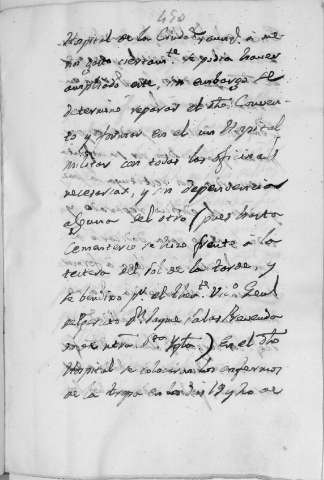 450
Hospital de la Ciudad, aunq.e a me-
nos gasto ciertam.te se podia haver
ampliado este, sin embargo se
determinò reparar el dho. Conven-
to y formar en el un Hospital
militar con todas las oficinas
necesarias, y sin dependencia
alguna del otro (pues hasta
Cementerio se hizo frente a lo
testero del Sol de la tarde, y
se bendixo p.r el
del Jayme Salas Prevenda
do de ntra. ) En el dho.
Hospital se colocaron los enfermos
de la tropa en los dias 19 y 20 de